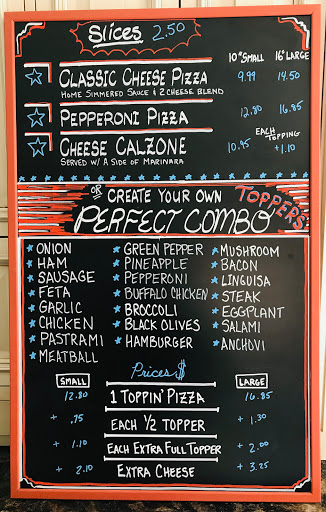 Slices 2.50
10" SMALL 16" LARGE
CLASSIC CHEESE PIZZA 9.99 14.50
HOME SIMMERED SAUCE & 2 CHEESE BLEND
PEPPERONI PIZZA 12.80 16.85
EACH TOPPING
CHEESE CALZONE 10.95 +1.10
SERVED W/ A SIDE OF MARINARA
OR CREATE YOUR OWN
PERFECT COMBO
TOPPERS
ONION
HAM
SAUSAGE
FETA
GARLIC
CHICKEN
PASTRAMI
MEATBALL
GREEN PEPPER
PINEAPPLE
PEPPERONI
BUFFALO CHICKEN
BROCCOLI
BLACK OLIVES
HAMBURGER
MUSHROOM
BACON
LINGUISA
STEAK
EGGPLANT
SALAMI
ANCHOVI
Prices $
SMALL LARGE
12.80 1 TOPPIN' PIZZA 16.85
+ .75 EACH 1/2 TOPPER + 1.30
+ 1.10 EACH EXTRA FULL TOPPER + 2.00
+ 2.10 EXTRA CHEESE + 3.25